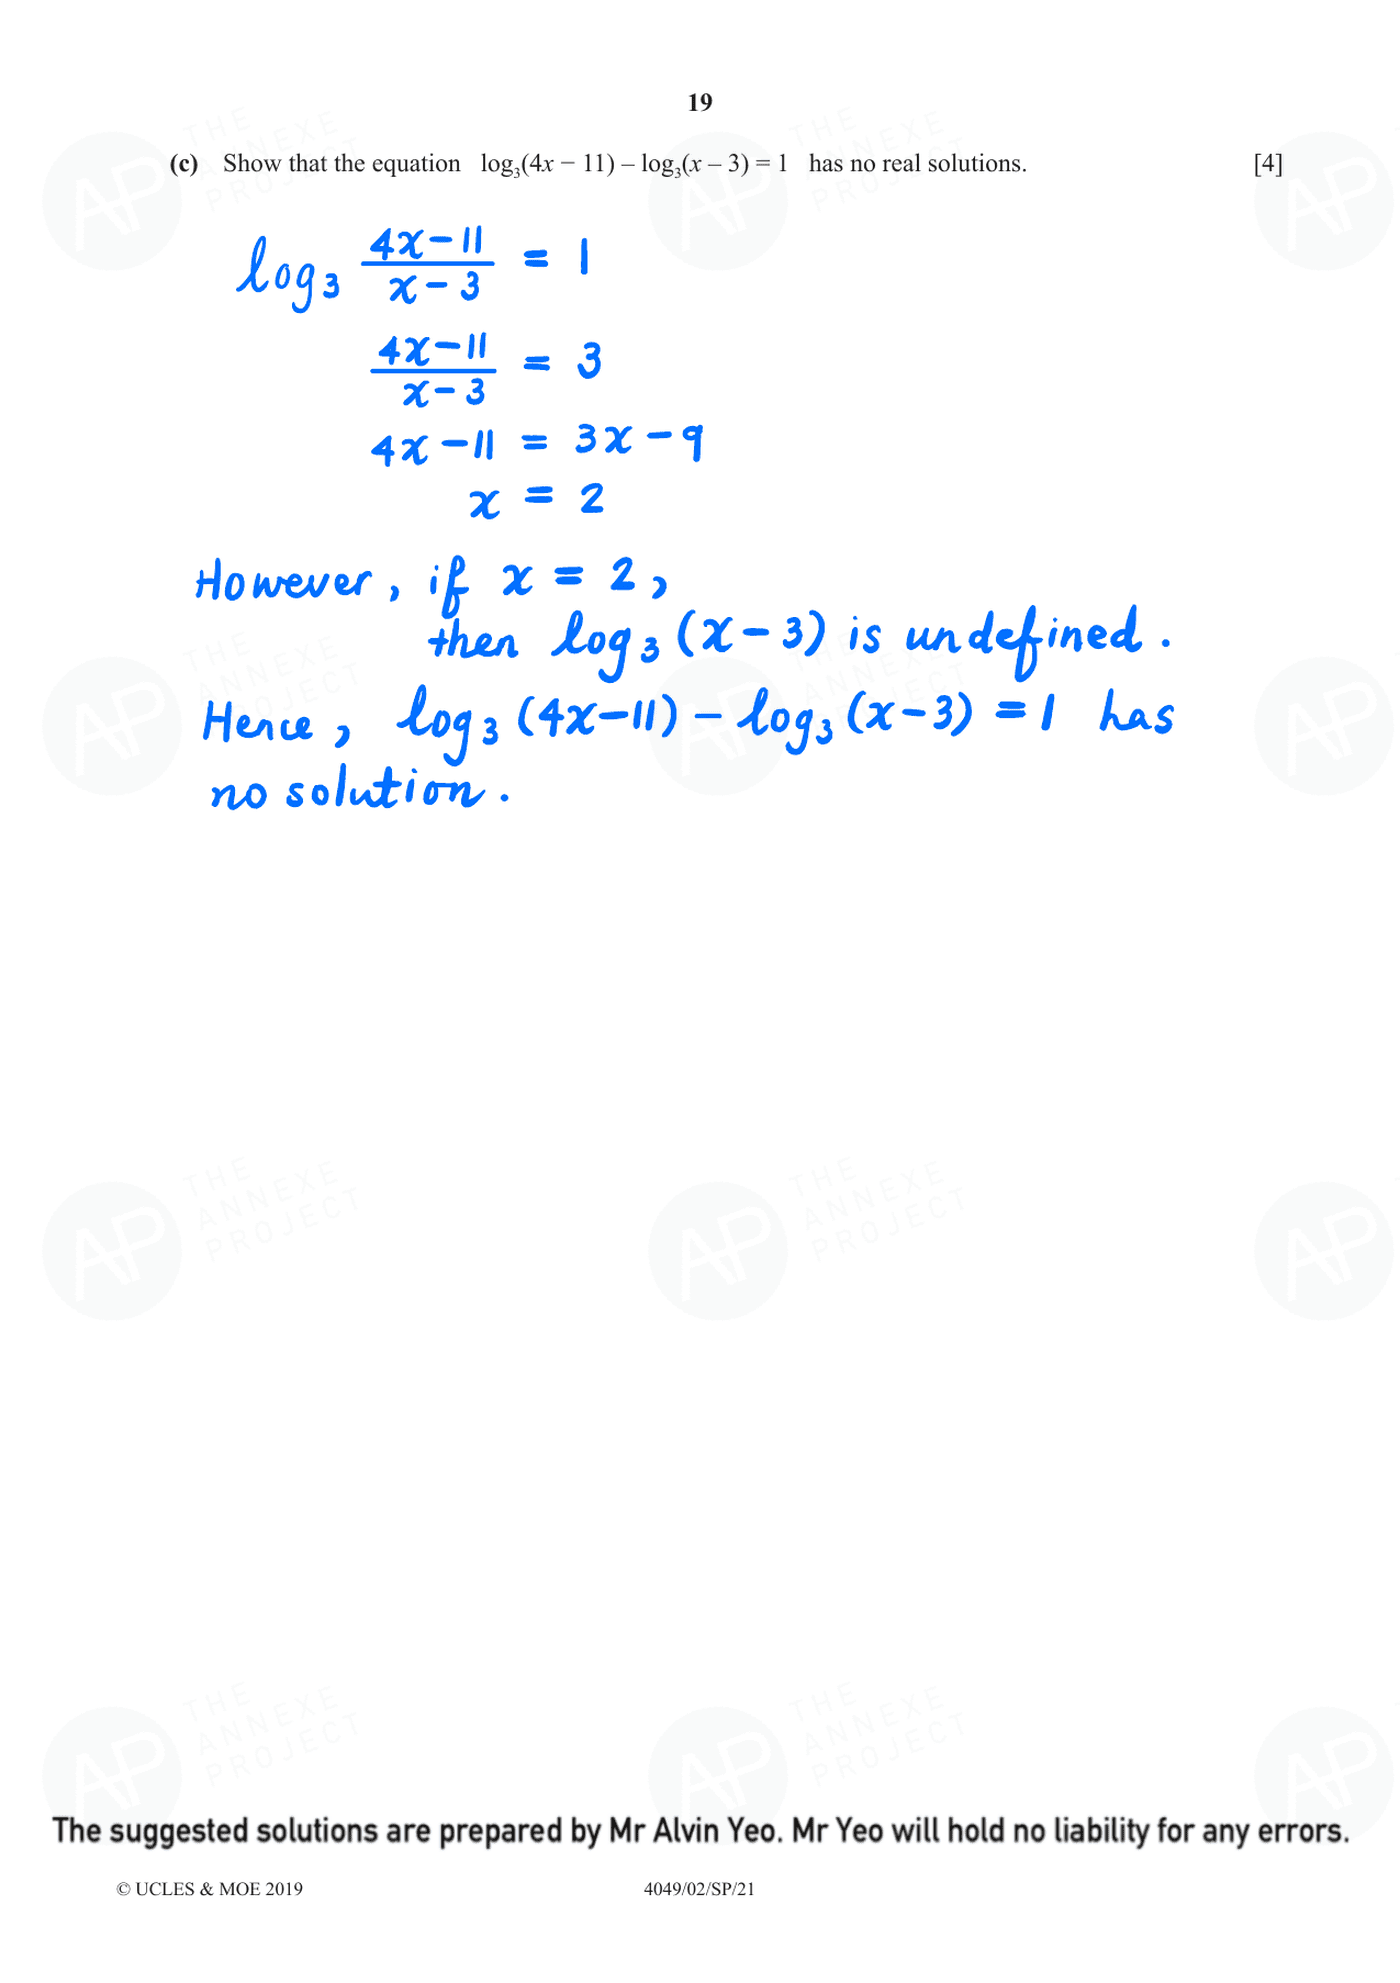 19
(c) Show that the equation log₃(4x − 11) – log₃(x – 3) = 1 has no real solutions. [4]
log₃ (4x−11)/(x−3) = 1
(4x−11)/(x−3) = 3
4x−11 = 3x−9
x = 2
However, if x = 2,
then log₃(x−3) is undefined.
Hence, log₃(4x−11) − log₃(x−3) = 1 has
no solution.
The suggested solutions are prepared by Mr Alvin Yeo. Mr Yeo will hold no liability for any errors.
© UCLES & MOE 2019 4049/02/SP/21
AP THE ANNEXE PROJECT